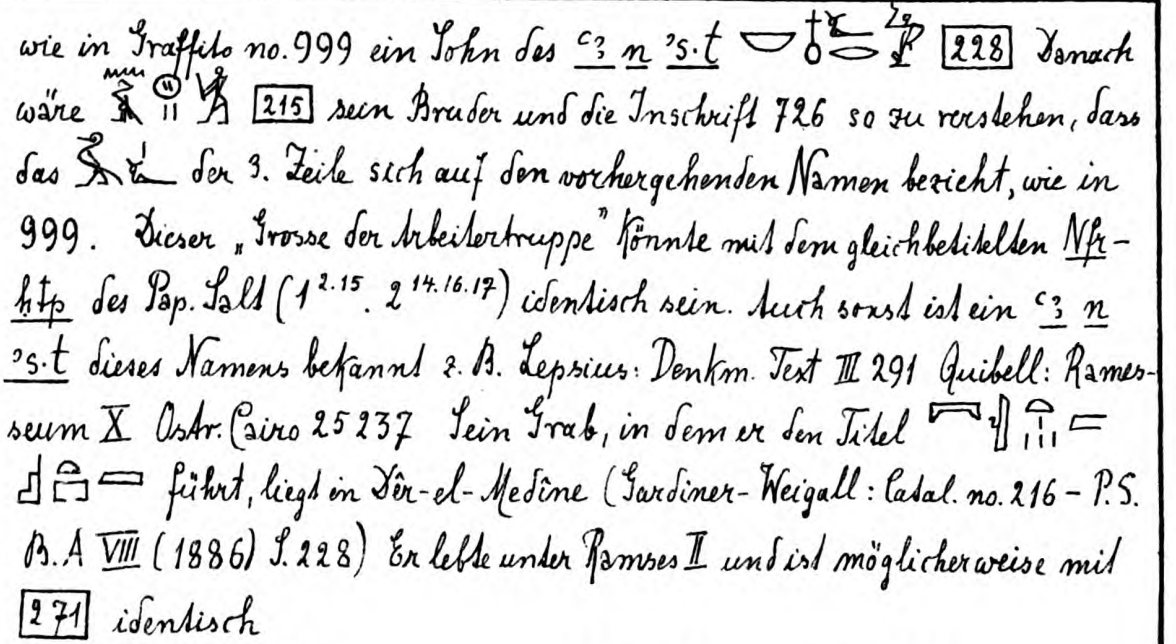 wie in Graffito no. 999 ein Sohn des ꜥꜣ n ꜣs.t [228] Danach
wäre [215] sein Bruder und die Inschrift 726 so zu verstehen, dass
das der 3. Zeile sich auf den vorhergehenden Namen bezieht, wie in
999. Dieser „Grosse der Arbeitertruppe” könnte mit dem gleichbetitelten Nfr-
ḥtp des Pap. Salt (1 2.15. 2 14.16.17) identisch sein. Auch sonst ist ein ꜥꜣ n
ꜣs.t dieses Namens bekannt z. B. Lepsius: Denkm. Text III 291 Quibell: Rames-
seum X Ostr. Cairo 25237 Sein Grab, in dem er den Titel
führt, liegt in Dêr-el-Medîne (Gardiner-Weigall: Catal. no. 216 – P.S.
B.A VIII (1886) S. 228) Er lebte unter Ramses II und ist möglicherweise mit
[271] identisch